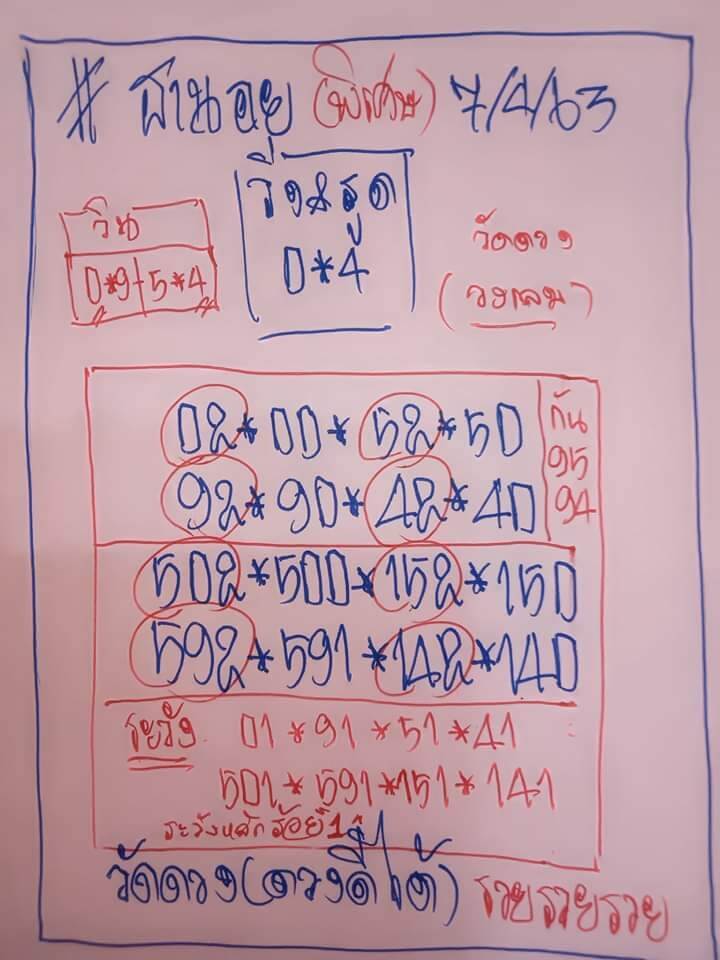 # ฮานอย (พิเศษ) 7/4/63
วิ่ง&รูด
0*4
วิน
0*9+5*4
วัดดวง
(วงกลม)
02*00*52*50
92*90*42*40
กัน
95
94
502*500*152*150
592*591*142*140
ระวัง 01*91*51*41
501*591*151*141
ระวังหลักร้อย 1
วัดดวง(ดวงดีได้) รวยรวยรวย